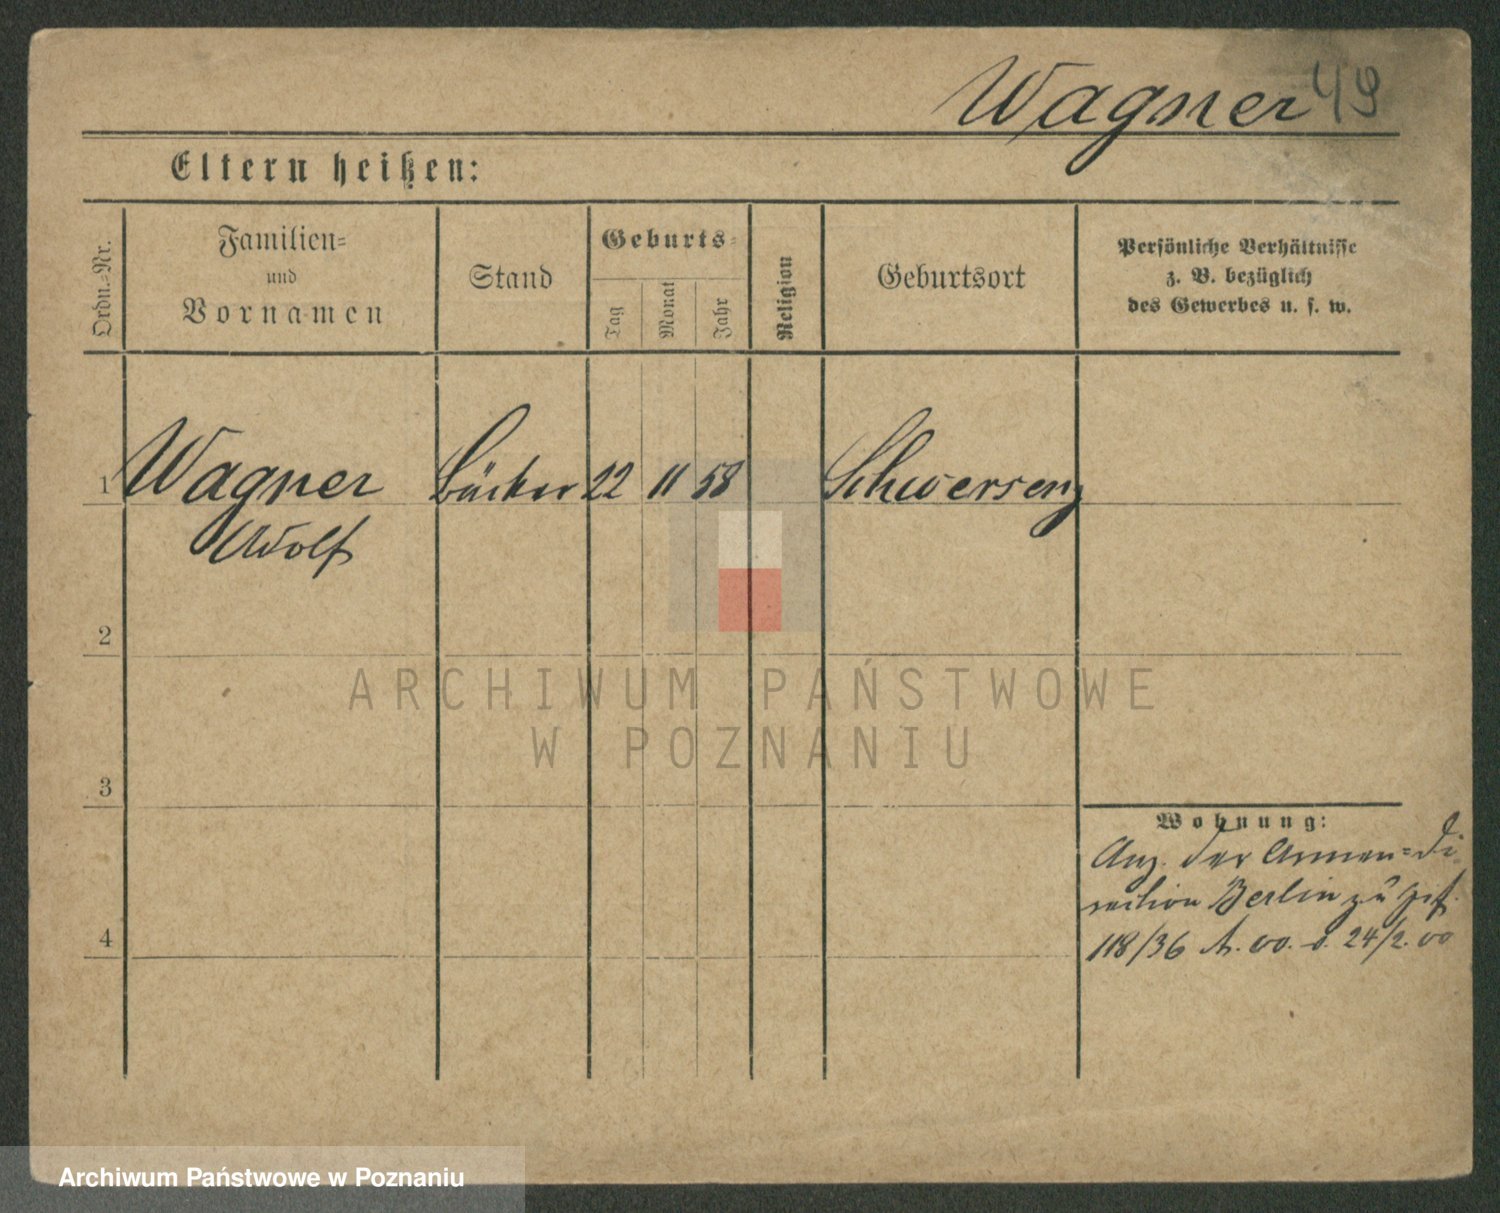 Wagner 49
Eltern heißen:
Ordn.-Nr.
Familien-
und
Vornamen
Stand
Geburts-
Tag
Monat
Jahr
Religion
Geburtsort
Persönliche Verhältnisse
z. B. bezüglich
des Gewerbes u. s. w.
1 Wagner Bäcker 22 11 58 Schwersenz
Adolf
2
ARCHIWUM PAŃSTWOWE
W POZNANIU
3
Wohnung:
Anz. der Armen-Di-
rection Berlin zu
4
118/36 A. 00. d. 24/2. 00
Archiwum Państwowe w Poznaniu